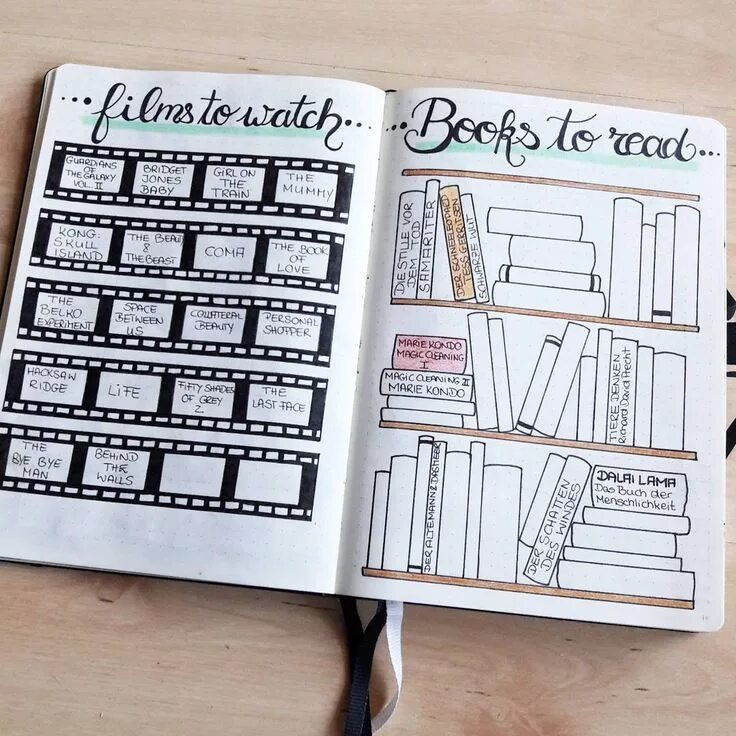 ...films to watch...
GUARDIANS
OF THE GALAXY
VOL. II
BRIDGET
JONES
BABY
GIRL ON
THE
TRAIN
THE
MUMMY
KONG:
SKULL
ISLAND
THE BEAUTY
&
THE BEAST
COMA
THE BOOK
OF
LOVE
THE
BELKO
EXPERIMENT
SPACE
BETWEEN
US
COLLATERAL
BEAUTY
PERSONAL
SHOPPER
HACKSAW
RIDGE
LiFE
FIFTY SHADES
OF GREY
2
THE
LAST FACE
THE
BYE BYE
MAN
BEHIND
THE
WALLS
...Books to read...
DIE STILLE VOR
DEM TOD
SAMARITER
DER SCHNEELEOPARD
TESS GERRITSEN
SCHWARZE WUT
MARIE KONDO
MAGIC CLEANING
I
MAGIC CLEANING II
MARIE KONDO
TIERE DENKEN
Richard David Precht
DER ALTE MANN & DAS MEER
DER SCHATTEN
DES WINDES
DALAI LAMA
Das Buch der
Menschlichkeit